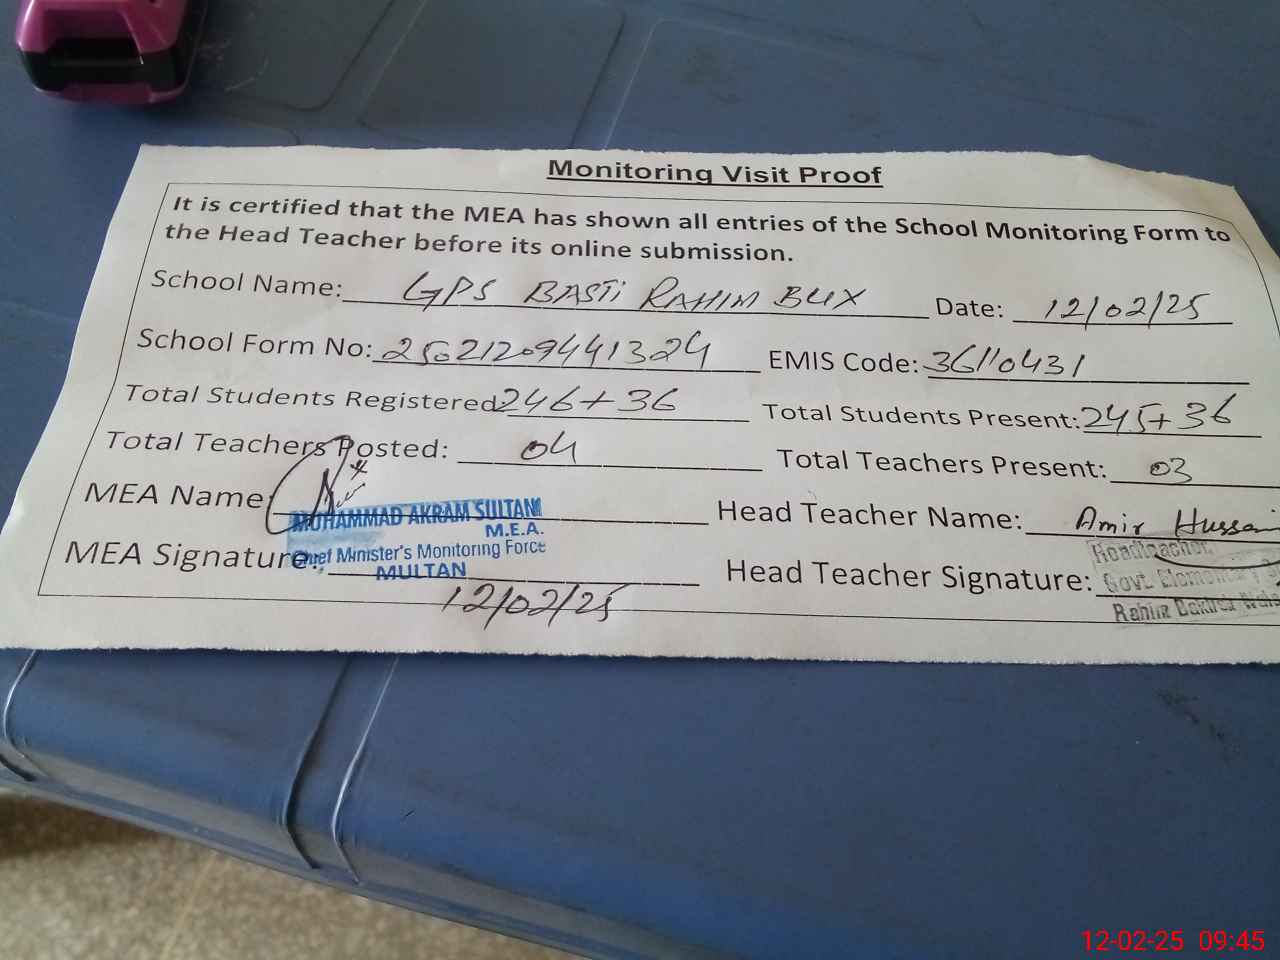 Monitoring Visit Proof
It is certified that the MEA has shown all entries of the School Monitoring Form to
the Head Teacher before its online submission.
School Name: GPS BASTI RAHIM BUX Date: 12/02/25
School Form No: 25021209441324 EMIS Code: 36110431
Total Students Registered 246+36 Total Students Present: 245+36
Total Teachers Posted: 04 Total Teachers Present: 03
MEA Name: Head Teacher Name: Amir Hussain
MUHAMMAD AKRAM SULTANI
M.E.A.
Chief Minister's Monitoring Force
MULTAN
MEA Signature: Head Teacher Signature:
Headteacher
Govt. Elementary
Rahim
12/02/25
12-02-25 09:45